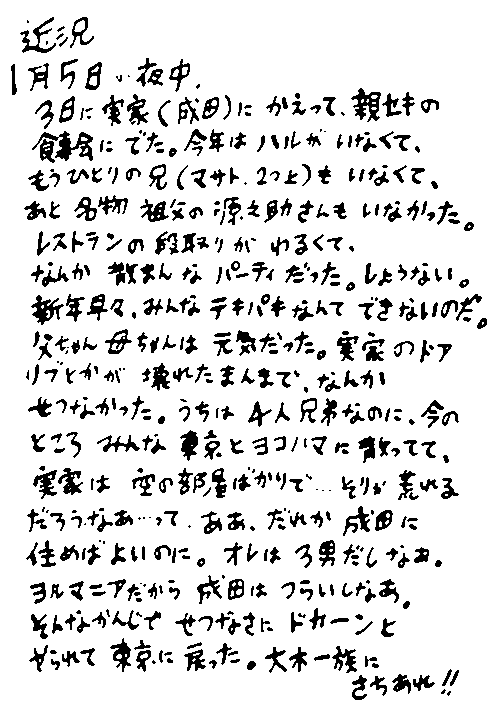 近況
1月5日い夜中、
3日に実家(成田)にかえって、親セキの
食事会にでた。今年はハルがいなくて、
もうひとりの兄(マサト、2つ上)もいなくて、
あと名物祖父の源之助さんもいなかった。
レストランの段取りがわるくて、
なんか散まんなパーティだった。しょうない。
新年早々、みんなテキパキなんてできないのだ。
父ちゃん母ちゃんは元気だった。実家のドア
リブとかが壊れたまんまで、なんか
せつなかった。うちは4人兄弟なのに、今の
ところみんな東京とヨコハマに散ってて、
実家は空の部屋ばかりで…そりゃ荒れる
だろうなあ…って。ああ、だれか成田に
住めばよいのに。オレは3男だしなぁ。
ヨルマニアだから成田はつらいしなあ。
そんなかんじでせつなさにドカーンと
やられて東京に戻った。大木一族に
さちあれ!!